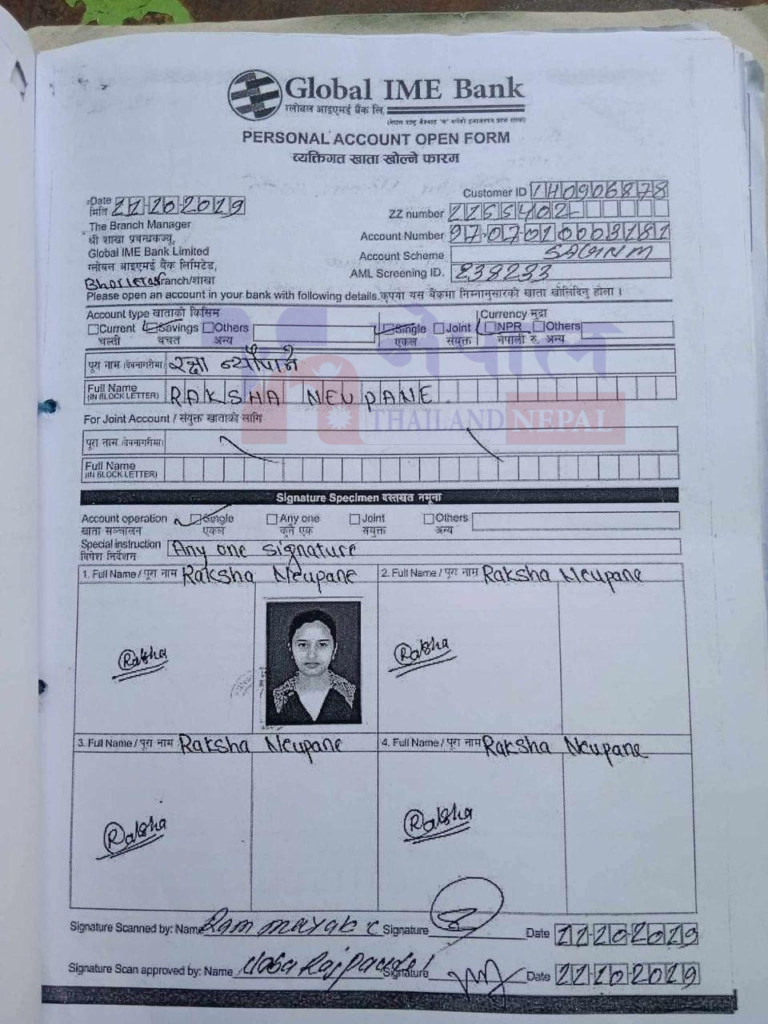 Global IME Bank
ग्लोबल आइएमई बैंक लि.
PERSONAL ACCOUNT OPEN FORM
व्यक्तिगत खाता खोल्ने फारम
Customer ID 140906878
Date मिति 22-10-2019
ZZ number
The Branch Manager
श्री शाखा प्रबन्धकज्यू,
Account Number
Global IME Bank Limited
Account Scheme
ग्लोबल आइएमई बैंक लिमिटेड,
AML Screening ID. 238233
Branch/शाखा
Please open an account in your bank with following details.कृपया यस बैंकमा निम्नानुसारको खाता खोलिदिनु होला ।
Account type खाताको किसिम
Currency मुद्रा
Current Savings Others Single Joint NPR Others
चल्ती बचत अन्य एकल संयुक्त नेपाली रु. अन्य
नेपाल
पूरा नाम (देवनागरीमा)
Full Name (IN BLOCK LETTER) RAKSHA NEUPANE
THAILAND NEPAL
For Joint Account / संयुक्त खाताको लागि
पूरा नाम (देवनागरीमा)
Full Name (IN BLOCK LETTER)
Signature Specimen दस्तखत नमूना
Account operation Single Any one Joint Others
खाता सञ्चालन एकल कुनै एक संयुक्त अन्य
Special instruction Any one signature
विशेष निर्देशन
1. Full Name / पूरा नाम Raksha Neupane 2. Full Name / पूरा नाम Raksha Neupane
Raksha Raksha
3. Full Name / पूरा नाम Raksha Neupane 4. Full Name / पूरा नाम Raksha Neupane
Raksha Raksha
Signature Scanned by: Name Signature Date 22-10-2019
Signature Scan approved by: Name Signature Date 22-10-2019